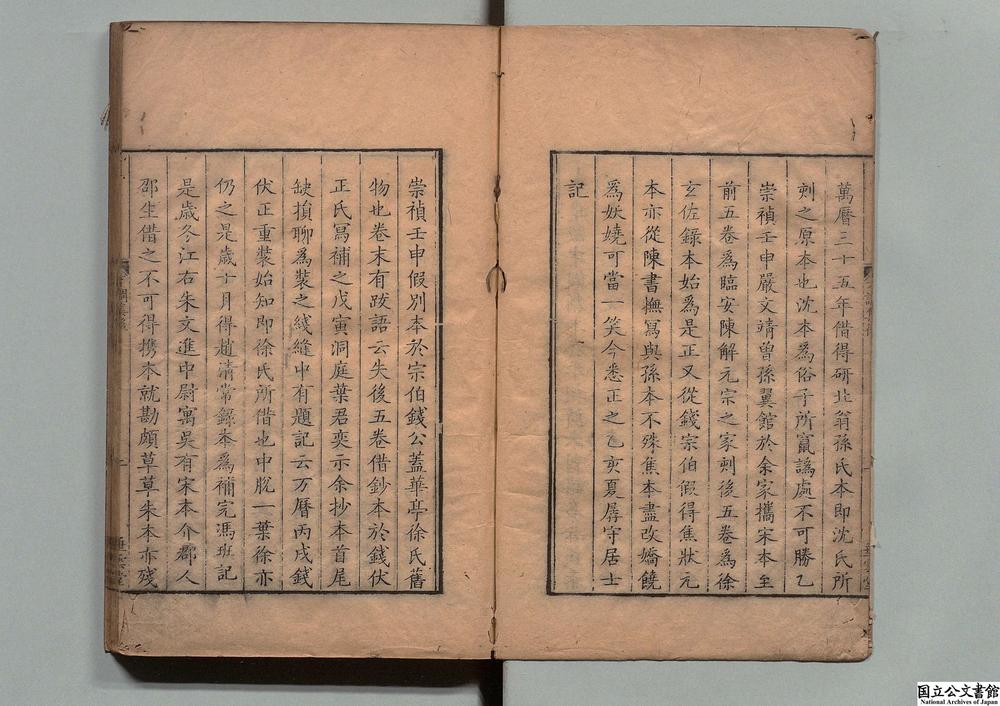 萬曆三十五年借得研北翁孫氏本即沈氏所
刻之原本也沈本爲俗子所竄譌處不可勝乙
崇禎壬申嚴文靖曾孫翼館於余家攜宋本至
前五卷爲臨安陳解元宗之家刻後五卷爲徐
玄佐錄本始爲是正又從錢宗伯假得焦狀元
本亦從陳書撫冩與孫本不殊焦本盡改嬌饒
爲妖嬈可當一笑今悉正之乙亥夏孱守居士
記
崇禎壬申假別本於宗伯錢公蓋華亭徐氏舊
物也卷末有跋語云失後五卷借鈔本於錢伏
正氏冩補之戊寅洞庭葉君奕示余抄本首尾
缺損聊爲裝之綫縫中有題記云万曆丙戌錢
伏正重裝始知即徐氏所借也中脫一葉徐亦
仍之是歲十月得趙清常錄本爲補完馮班記
是歲冬江右朱文進中尉寓吳有宋本介郡人
邵生借之不可得携本就勘頗草草朱本亦殘
国立公文書館
National Archives of Japan